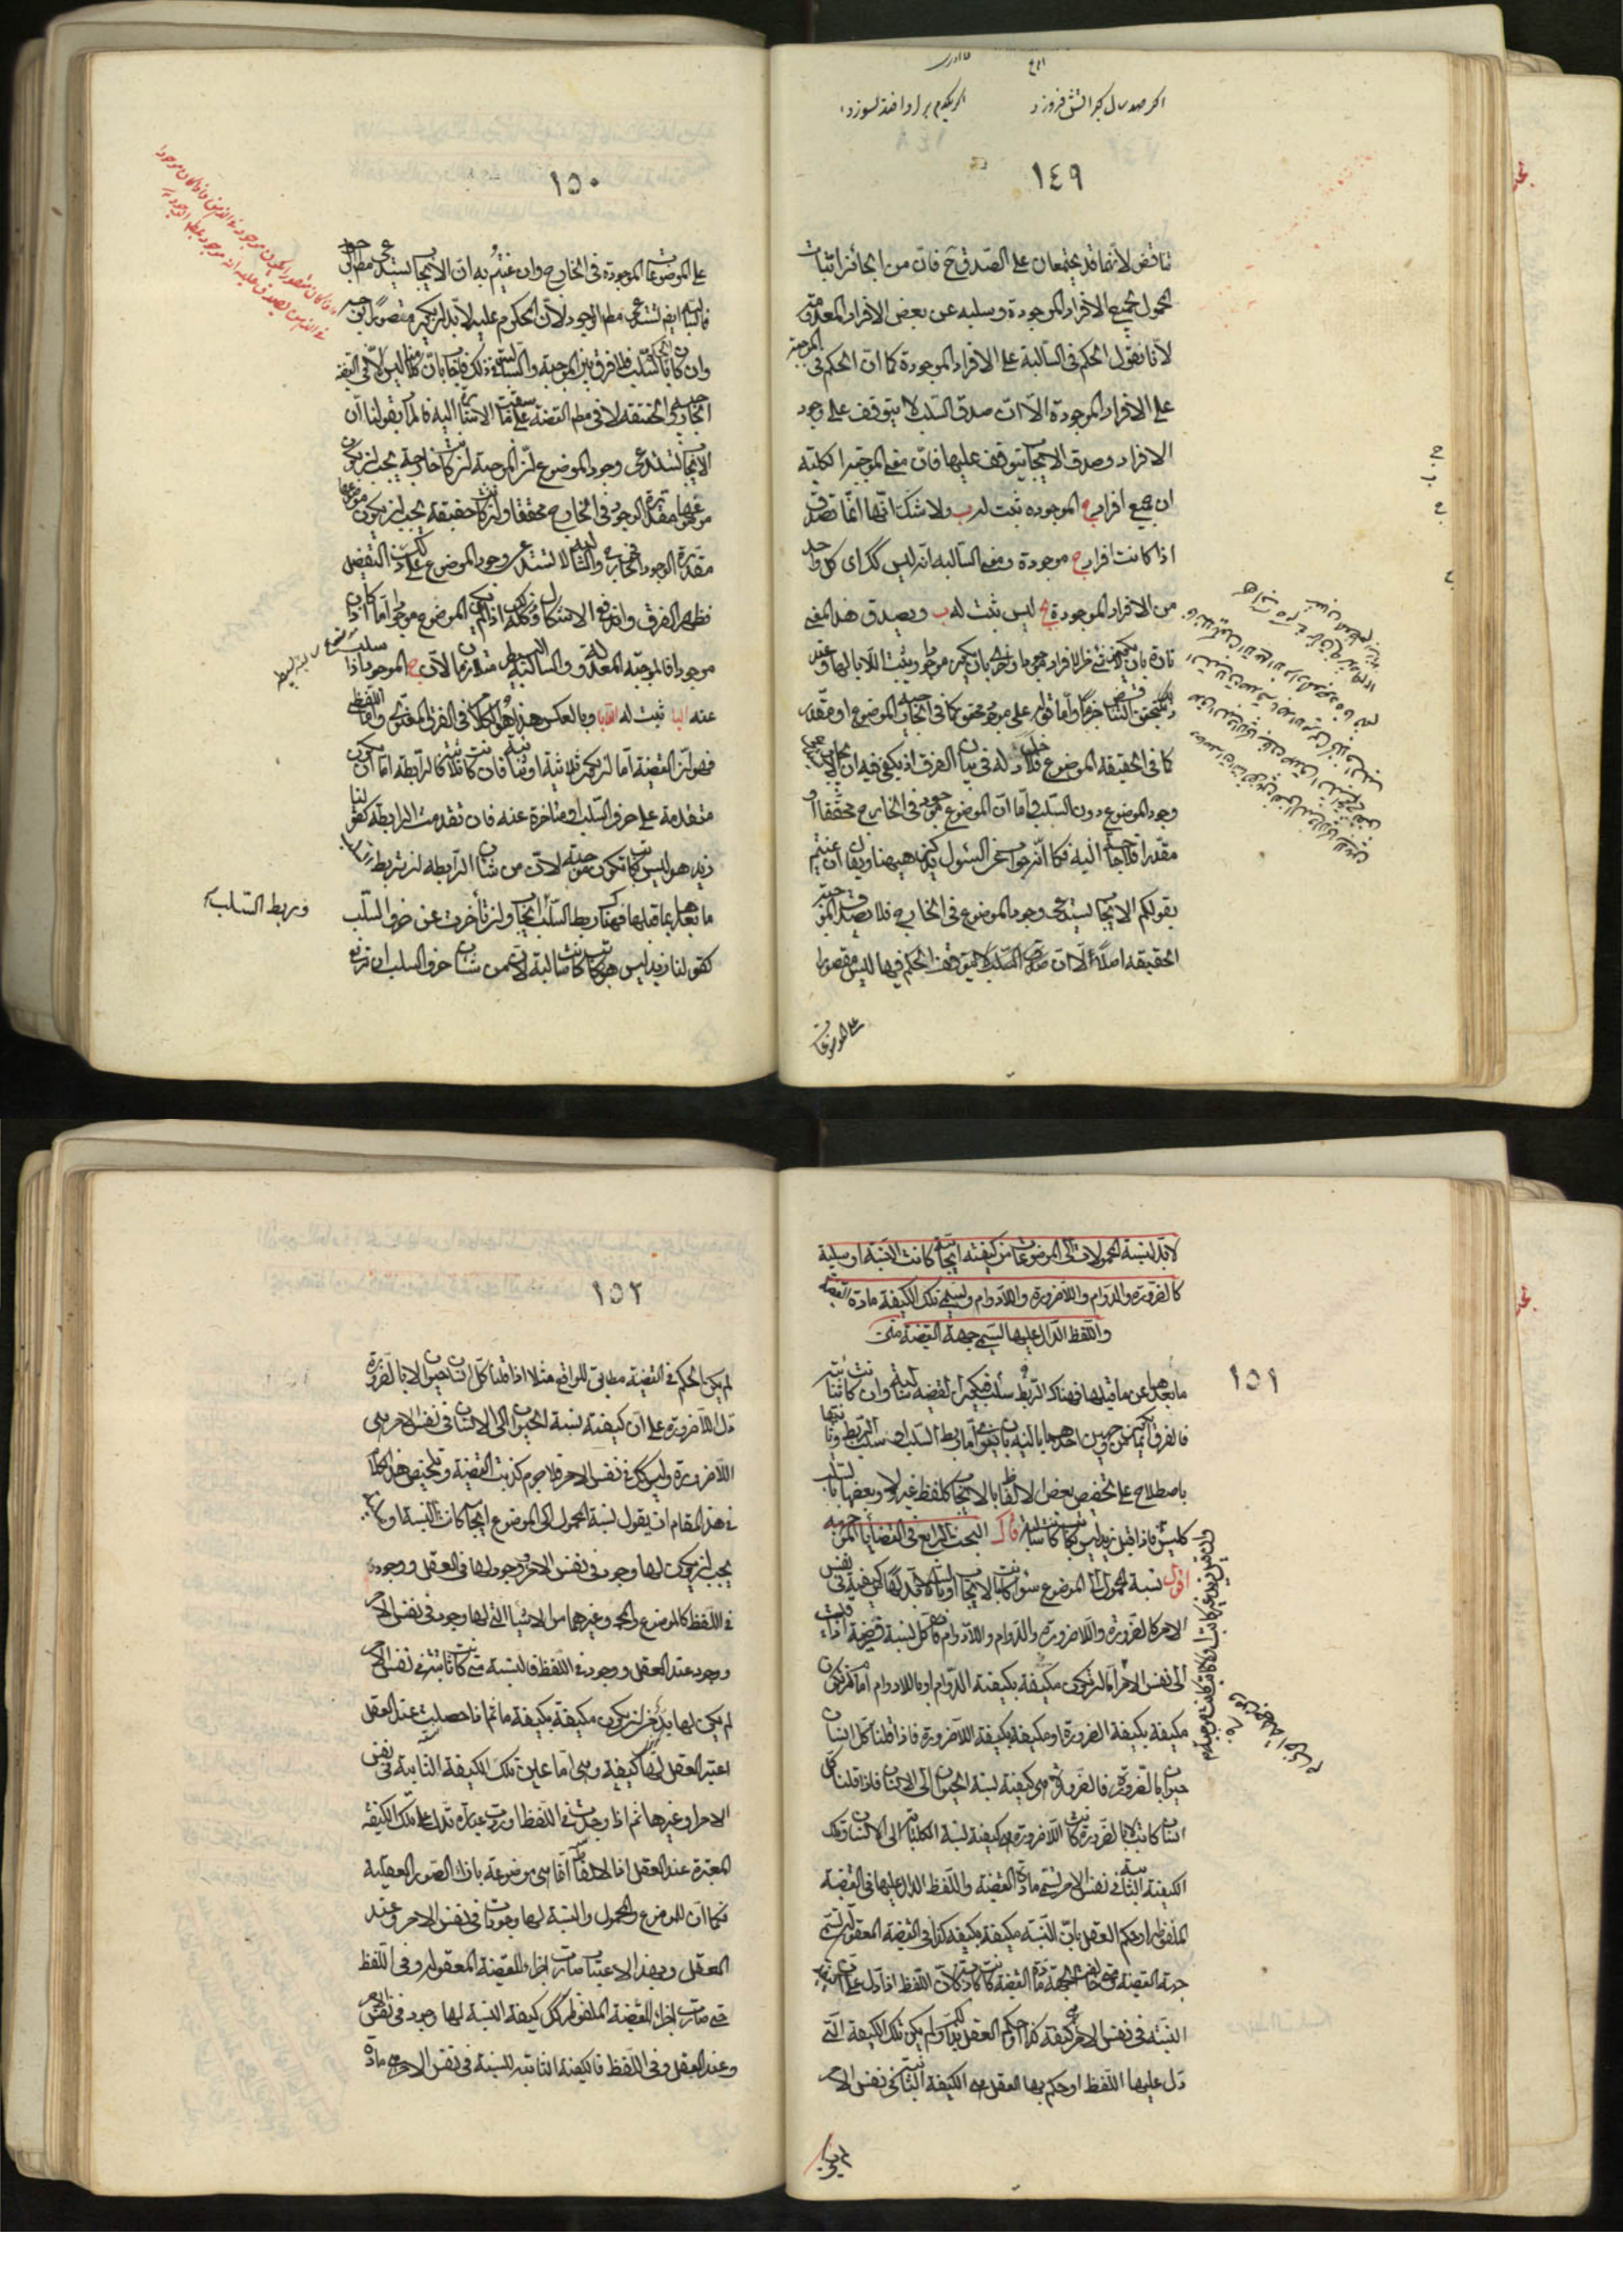 اکر صد سال کبر اتش فروزد
اکر یکدم بر او افتد بسوزد
١٤٩
تناقض لانهما قد يجتمعان على الصدق ح فان من الجائز اثبات
المحمول لجميع الافراد الموجودة وسلبه عن بعض الافراد المعدومة
لانا نقول الحكم في السالبة على الافراد الموجودة كما ان الحكم في الموجبة
على الافراد الموجودة الا ان صدق السلب لا يتوقف على وجود
الافراد وصدق الايجاب يتوقف عليها فان معنى الموجبة الكلية
ان جميع افراد ج الموجوده ثبت له ب ولا شك انها انما تصدق
اذا كانت افراد ج موجودة ومعنى السالبه انه ليس كك اى كل واحد
من الافراد الموجودة لج ليس ثبت له ب ويصدق هذا المعنى
تارة بان لا يكون شئ من الافراد موجودا واخرى بان يكون موجودا ويثبت اللاباء لها وعند
ذلك يتحقق التناقض جزما واما قوله على موجود محقق كما في الخارجية الموضوع او مقدر
كما في الحقيقه الموضوع فلا دخل له في بيان الفرق اذ يكفى فيه ان الايجاب يستدعى
وجود الموضوع دون السلب واما ان الموضوع موجود في الخارج محققا او
مقدرا فلا حاجة اليه فكانه جواب عن سؤال يذكر هيهنا ويقال ان عنيتم
بقولكم الايجاب يستدعى وجود الموضوع في الخارج فلا يصدق الموجبة
الحقيقه اصلا الا ان صدق السلب لا يتوقف الحكم فيها ليس مقصورا
على الموضوعات
١٥٠
على الموضوعات الموجودة في الخارج وان عنيتم به ان الايجاب يستدعى مطلق الوجود
فالسالبة ايضا تستدعى مطلق الوجود لان المحكوم عليه لا بد ان يكون متصورا بوجه
وان كان الحكم بالسلب فلا فرق بين الموجبة والسالبة في ذلك فيجاب بان كلامنا ليس الا في القضية
الخارجية والحقيقه لا في مطلق القضية على ما سبقت الاشارة اليه فالمراد بقولنا ان
الايجاب يستدعى وجود الموضوع ان الموجبة ان كانت خارجية يجب ان يكون
موضوعها مقدرة الوجود في الخارج محققا وان كانت حقيقة يجب ان يكون موضوعها
مقدرة الوجود في الخارج والسالبة لا تستدعى وجود الموضوع على ذلك التفصيل
فظهر الفرق واندفع الاشكال وذلك كله اذا لم يكن الموضوع موجودا اما اذا كان
موجودا فالموجبة المعدولة والسالبة البسيطة متلازمان لان ج الموجود اذا سلب
عنه الباء ثبت له اللاباء وبالعكس هذا هو الكلام في الفرق المعنوى واما اللفظى
فهو ان القضية اما ان يكون ثلاثية او ثنائية فان كانت ثلاثية فالرابطة اما ان يكون
متقدمة على حرف السلب او متاخرة عنه فان تقدمت الرابطه كقولنا
زيد هو ليس بكاتب تكون موجبة لان من شان الرابطه ان تربط
ما بعدها بما قبلها فهناك ربط السلب ايجاب وان تأخرت عن حرف السلب
وربط السلب
كقولنا زيد ليس هو بكاتب كانت سالبة لان من شان حرف السلب ان ترفع
لا بد لنسبة المحمولات الى الموضوعات من كيفيته ايجابية كانت النسبة او سلبية
كالضرورة والدوام واللاضرورة واللادوام وتسمى تلك الكيفية مادة القضية
واللفظ الدال عليها يسمى جهة القضية متن
١٥١
ما بعدها عن ما قبلها فهناك الربط سلب فيكون القضيه سالبة وان كانت ثنائية
فالفرق انما يكون من وجهين احدهما بالنية بان ينوى اما ربط السلب او سلب الربط وثانيها
باصطلاح على تخصيص بعض الالفاظ بالايجاب كلفظ غير ولا وبعضها بالسلب
كليس فاذا قيل زيد ليس بكاتب كانت سالبة قال البحث الرابع في القضايا الموجهة
اقول نسبة المحمول الى الموضوع سواء كانت بالايجاب او بالسلب لا بد لها من كيفية في نفس
الامر كالضرورة واللاضرورة والدوام واللادوام فان كل نسبة فرضية اذا قيست
الى نفس الامر اما ان يكون مكيفة بكيفية الدوام او باللادوام اما ان يكون
مكيفة بكيفة الضرورة او مكيفة بكيفية اللاضرورة فاذا قلنا كل انسان
حيوان بالضرورة فالضرورة هى كيفية نسبة الحيوان الى الانسان فاذا قلنا كل
انسان كاتب لا بالضرورة كانت اللاضرورة هى كيفية نسبة الكتابة الى الانسان وتلك
الكيفية الثابتة في نفس الامر تسمى مادة القضية واللفظ الدال عليها في القضية
الملفوظة او حكم العقل بان النسبة مكيفة بكيفة كذا في القضية المعقولة يسمى
جهة القضية ومتى خالفت الجهة مادة القضية كانت كاذبة لان اللفظ اذا دل على ان كيفية
النسبة في نفس الامر كيفية كذا او حكم العقل بذلك ولم يكن تلك الكيفية التى
دل عليها اللفظ او حكم بها العقل هى الكيفة الثابتة في نفس الامر
لم يكن
١٥٢
لم يكن الحكم في القضية مطابق للواقع مثلا اذا قلنا كل انسان حيوان لا بالضرورة
دل اللاضرورة على ان كيفية نسبة الحيوان الى الانسان في نفس الامر هى
اللاضرورة وليس كك في نفس الامر فلا جرم كذبت القضية وتلخيص هذا الكلام
في هذا المقام ان يقول نسبة المحمول الى الموضوع ايجابا كانت النسبة او سلبا
يجب ان يكون لها وجود في نفس الامر ووجود لها في العقل ووجود
في اللفظ كالموضوع والمحمول وغيرهما من الاشياء التى لها وجود في نفس الامر
ووجود عند العقل ووجود في اللفظ فالنسبة متى كانت ثابتة في نفس الامر
لم يكن لها بد من ان يكون مكيفة بكيفية ما ثم اذا حصلت عند العقل
اعتبر العقل لها كيفية وهى اما عين تلك الكيفة الثابتة في نفس
الامر او غيرها ثم اذا وجدت في اللفظ اوردت عبارة تدل على تلك الكيفة
المعتبرة عند العقل اذ الالفاظ انما هى موضوعة بازاء الصور العقلية
فكما ان للموضوع والمحمول والنسبة لها وجودات في نفس الامر وعند
العقل وبهذا الاعتبار صارت اجزاء للقضية المعقولة وفى اللفظ
حتى صارت اجزاء للقضية الملفوظة كك كيفة النسبة لها وجود في نفس الامر
وعند العقل وفي اللفظ فالكيفية الثابته للنسبة في نفس الامر هى مادة